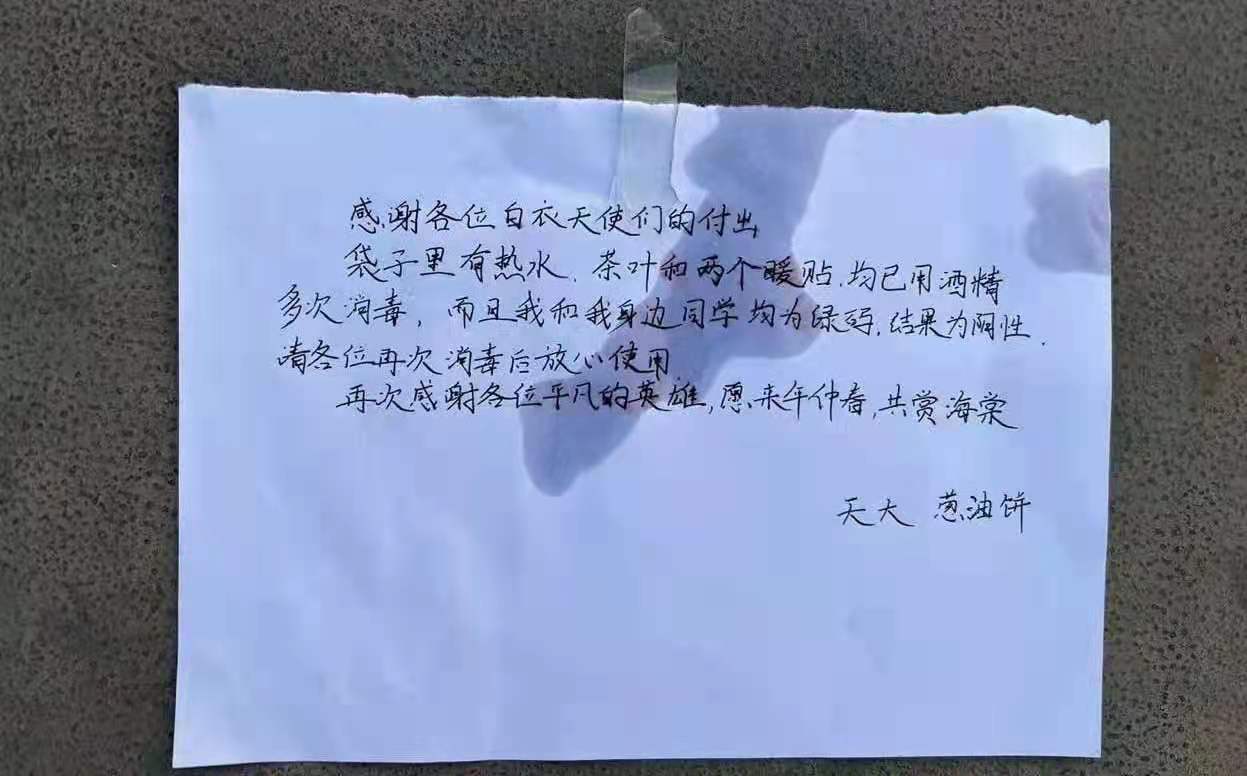 感谢各位白衣天使们的付出
袋子里有热水、茶叶和两个暖贴,均已用酒精
多次消毒,而且我和我身边同学均为绿码,结果为阴性.
请各位再次消毒后放心使用
再次感谢各位平凡的英雄,愿来年仲春,共赏海棠
天大 葱油饼